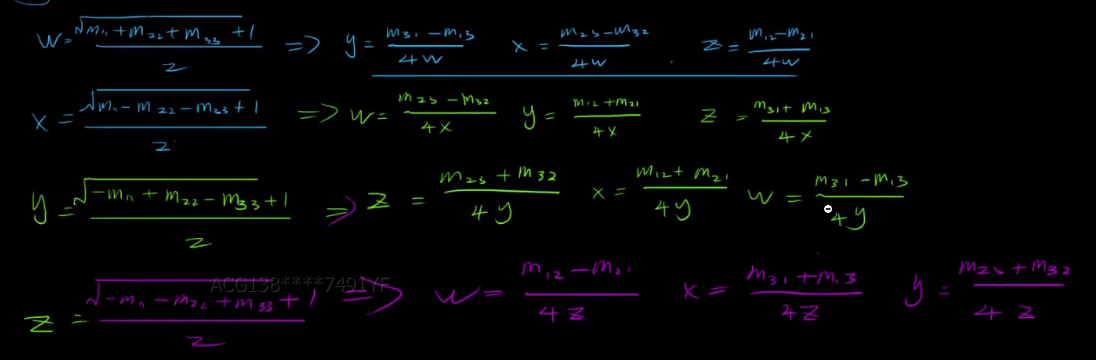 w = √(m₁₁ + m₂₂ + m₃₃ + 1) / 2 => y = (m₃₁ − m₁₃) / 4w x = (m₂₃ − m₃₂) / 4w z = (m₁₂ − m₂₁) / 4w
x = √(m₁₁ − m₂₂ − m₃₃ + 1) / 2 => w = (m₂₃ − m₃₂) / 4x y = (m₁₂ + m₂₁) / 4x z = (m₃₁ + m₁₃) / 4x
y = √(−m₁₁ + m₂₂ − m₃₃ + 1) / 2 => z = (m₂₃ + m₃₂) / 4y x = (m₁₂ + m₂₁) / 4y w = (m₃₁ − m₁₃) / 4y
ACG138****7491YF
z = √(−m₁₁ − m₂₂ + m₃₃ + 1) / 2 => w = (m₁₂ − m₂₁) / 4z x = (m₃₁ + m₁₃) / 4z y = (m₂₃ + m₃₂) / 4z